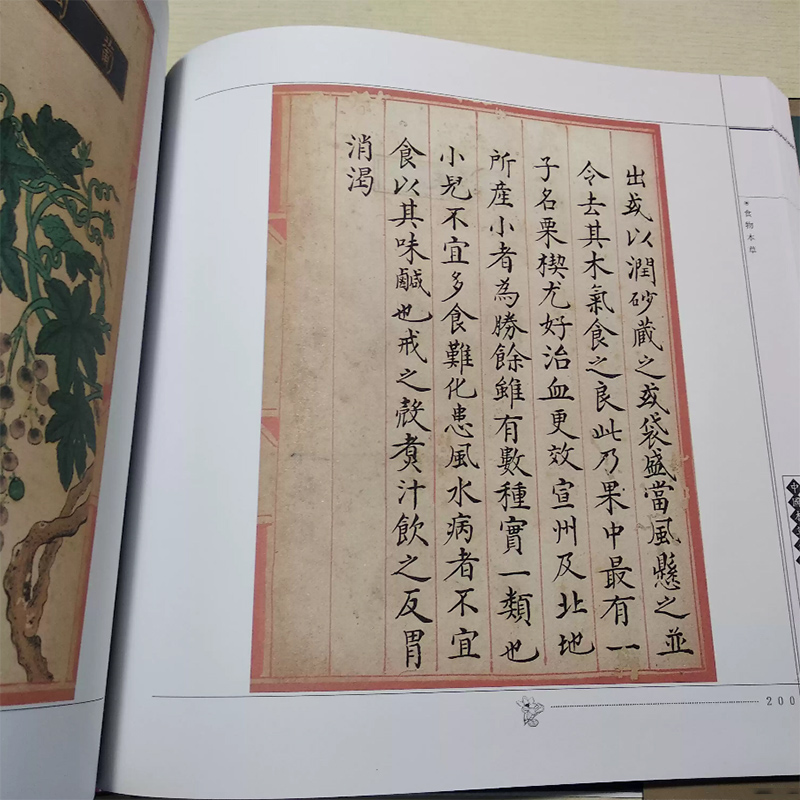 出或以潤砂藏之或袋盛當風懸之並
令去其木氣食之良此乃果中最有一
子名栗楔尤好治血更效宣州及北地
所産小者為勝餘雖有數種實一類也
小兒不宜多食難化患風水病者不宜
食以其味鹹也戒之殼煮汁飲之反胃
消渴
食物本草
200
萄